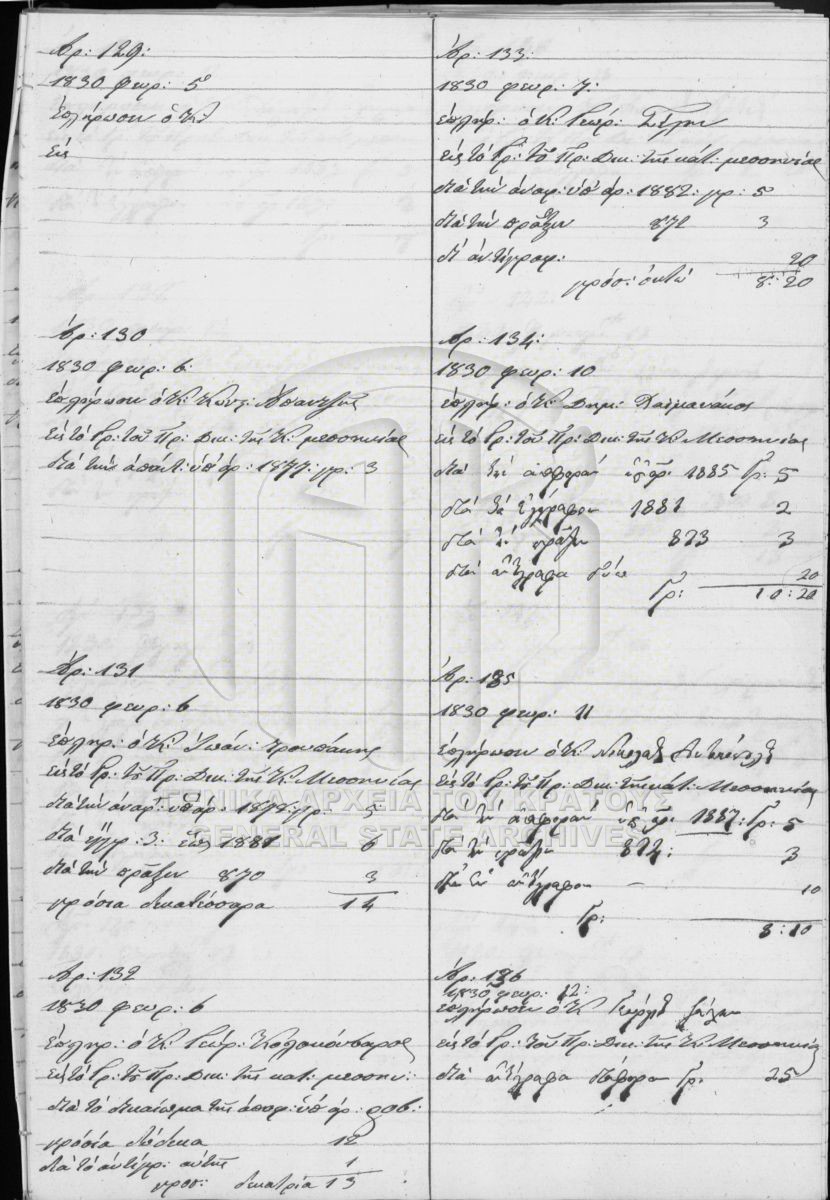 Ἀρ: 129:
1830 φευρ: 5
ἐπλήρωσεν ὁ Κ:
εἰς
Ἀρ: 130
1830 φευρ: 6
ἐπλήρωσεν ὁ Κ:
εἰς τὸ Γρ: τοῦ Πρ: Δικ: τῆς Κ: μεσσηνίας
διὰ τὴν ὑπ' ἀρ: 1877: γρ: 3
Ἀρ: 131
1830 φευρ: 6
ἐπληρ: ὁ Κ:
εἰς τὸ Γρ: τοῦ Πρ: Δικ: τῆς Κ: Μεσσηνίας
διὰ τὴν ἀναφ: ὑπ' ἀρ: 1878: γρ: 5
διὰ ἔγγρ: 3: 1881 6
διὰ τὴν πρᾶξιν 870 3
γρόσια δεκατέσσαρα 14
Ἀρ: 132
1830 φευρ: 6
ἐπληρ: ὁ Κ: Γεώρ:
εἰς τὸ Γρ: τοῦ Πρ: Δικ: τῆς κατ: μεσσην:
διὰ τὸ δικαίωμα τῆς ἀποφ: ὑπ' ἀρ:
γρόσια δώδεκα 12
διὰ τὸ ἀντίγρ: αὐτῆς 1
γροσ: δεκατρία 13
Ἀρ: 133:
1830 φευρ: 7:
ἐπληρ: ὁ Κ: Γεωρ:
εἰς τὸ Γρ: τοῦ Πρ: Δικ: τῆς κάτ: μεσσηνίας
διὰ τὴν ἀναφ: ὑπ' ἀρ: 1882: γρ: 5
διὰ τὴν πρᾶξιν 872 3
δι' ἀντίγραφ: 20
γρόσ: ὀκτώ 8:20
Ἀρ: 134:
1830 φευρ: 10
ἐπληρ: ὁ Κ: Δημ:
εἰς τὸ Γρ: τοῦ Πρ: Δικ: τῆς Κ: Μεσσηνίας
διὰ τὴν ἀναφορὰν ὑπ' ἀρ: 1885 Γρ: 5
διὰ ἔγγραφον 1881 2
διὰ τὴν πρᾶξιν 873 3
διὰ ἀντίγραφα 20
Γρ: 10:20
Ἀρ: 135
1830 φευρ: 11
ἐπλήρωσεν ὁ Κ:
εἰς τὸ Γρ: τοῦ Πρ: Δικ: τῆς κάτ: Μεσσηνίας
διὰ τὴν ἀναφορὰν ὑπ' ἀρ: 1887: Γρ: 5
διὰ τὴν πρᾶξιν 874: 3
διὰ τὸ ἀντίγραφον — 10
Γρ: 8:10
Ἀρ: 136
1830 φευρ: 12:
ἐπλήρωσεν ὁ Κ:
εἰς τὸ Γρ: τοῦ Πρ: Δικ: τῆς Κ: Μεσσηνίας
διὰ ἀντίγραφα διάφορα Γρ: 25
ΓΕΝΙΚΑ ΑΡΧΕΙΑ ΤΟΥ ΚΡΑΤΟΥΣ
GENERAL STATE ARCHIVES